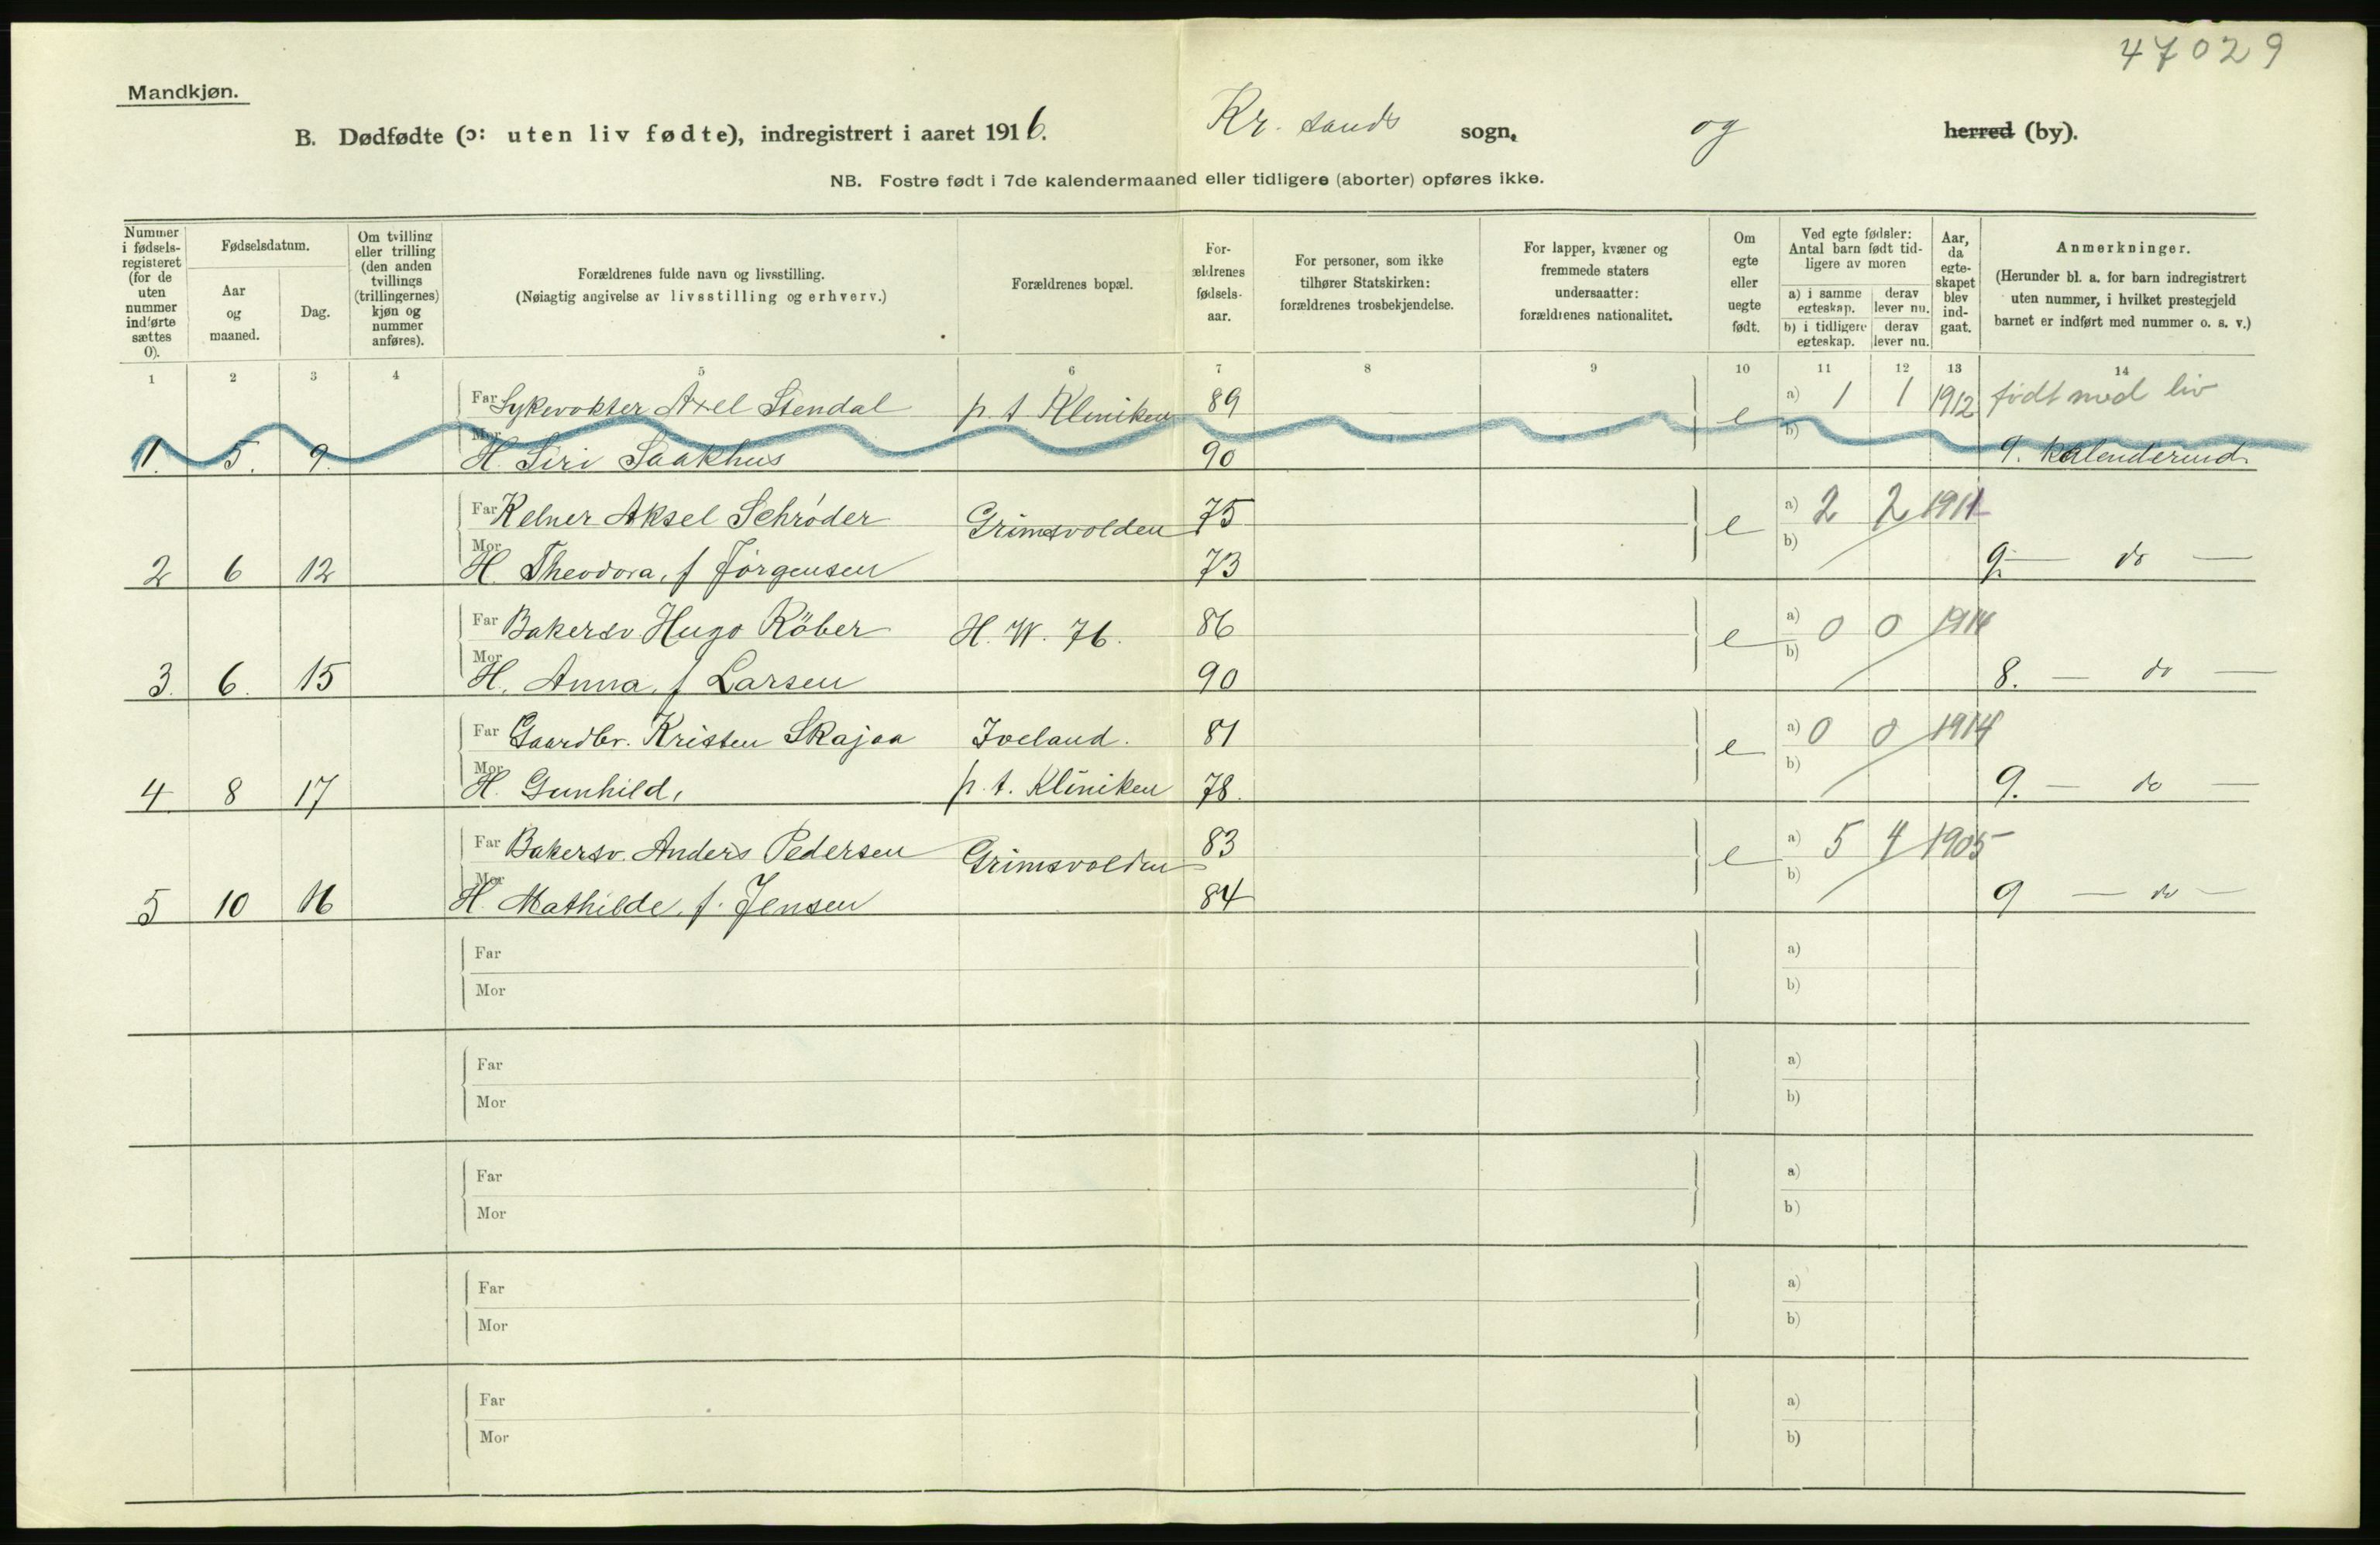 47029
Mandkjøn.
B. Dødfødte (ɔ: uten liv fødte), indregistrert i aaret 1916. Kr. sands sogn, og herred (by).
NB. Fostre født i 7de kalendermaaned eller tidligere (aborter) opføres ikke.
Nummer i fødsels-registeret (for de uten nummer indførte sættes 0).
Fødselsdatum.
Aar og maaned.
Dag.
Om tvilling eller trilling (den anden tvillings (trillingernes) kjøn og nummer anføres).
Forældrenes fulde navn og livsstilling.
(Nøiagtig angivelse av livsstilling og erhverv.)
Forældrenes bopæl.
For-ældrenes fødsels-aar.
For personer, som ikke tilhører Statskirken: forældrenes trosbekjendelse.
For lapper, kvæner og fremmede staters undersaatter: forældrenes nationalitet.
Om egte eller uegte født.
Ved egte fødsler: Antal barn født tid-ligere av moren
a) i samme egteskap. derav lever nu.
b) i tidligere egteskap. derav lever nu.
Aar, da egte-skapet blev ind-gaat.
Anmerkninger.
(Herunder bl. a. for barn indregistrert uten nummer, i hvilket prestegjeld barnet er indført med nummer o. s. v.)
1 2 3 4 5 6 7 8 9 10 11 12 13 14
Far Sykevokter Axel Stendal p. t Kliniken 89 e a) 1 1 1912 født med liv
1. 5. 9. Mor H. Siri Saakhus 90 b) 9. kalendermd.
Far Kelner Aksel Schrøder Grimsvolden 75 e a) 2 2 1911
2 6 12 Mor H. Theodora, f Jørgensen 73 b) 9. — do —
Far Bakersv. Hugo Röber H. W. 76. 86 e a) 0 0 1914
3. 6. 15 Mor H. Anna, f Larsen 90 b) 8. — do —
Far Gaardbr. Kristen Skajaa Iveland. 81 e a) 0 0 1914
4. 8 17 Mor H. Gunhild, p. t. Kliniken 78. b) 9. — do —
Far Bakersv. Anders Pedersen Grimsvolden 83 e a) 5 4 1905
5 10 16 Mor H. Mathilde, f. Jensen 84 b) 9 — do —
Far a)
Mor b)
Far a)
Mor b)
Far a)
Mor b)
Far a)
Mor b)
Far a)
Mor b)